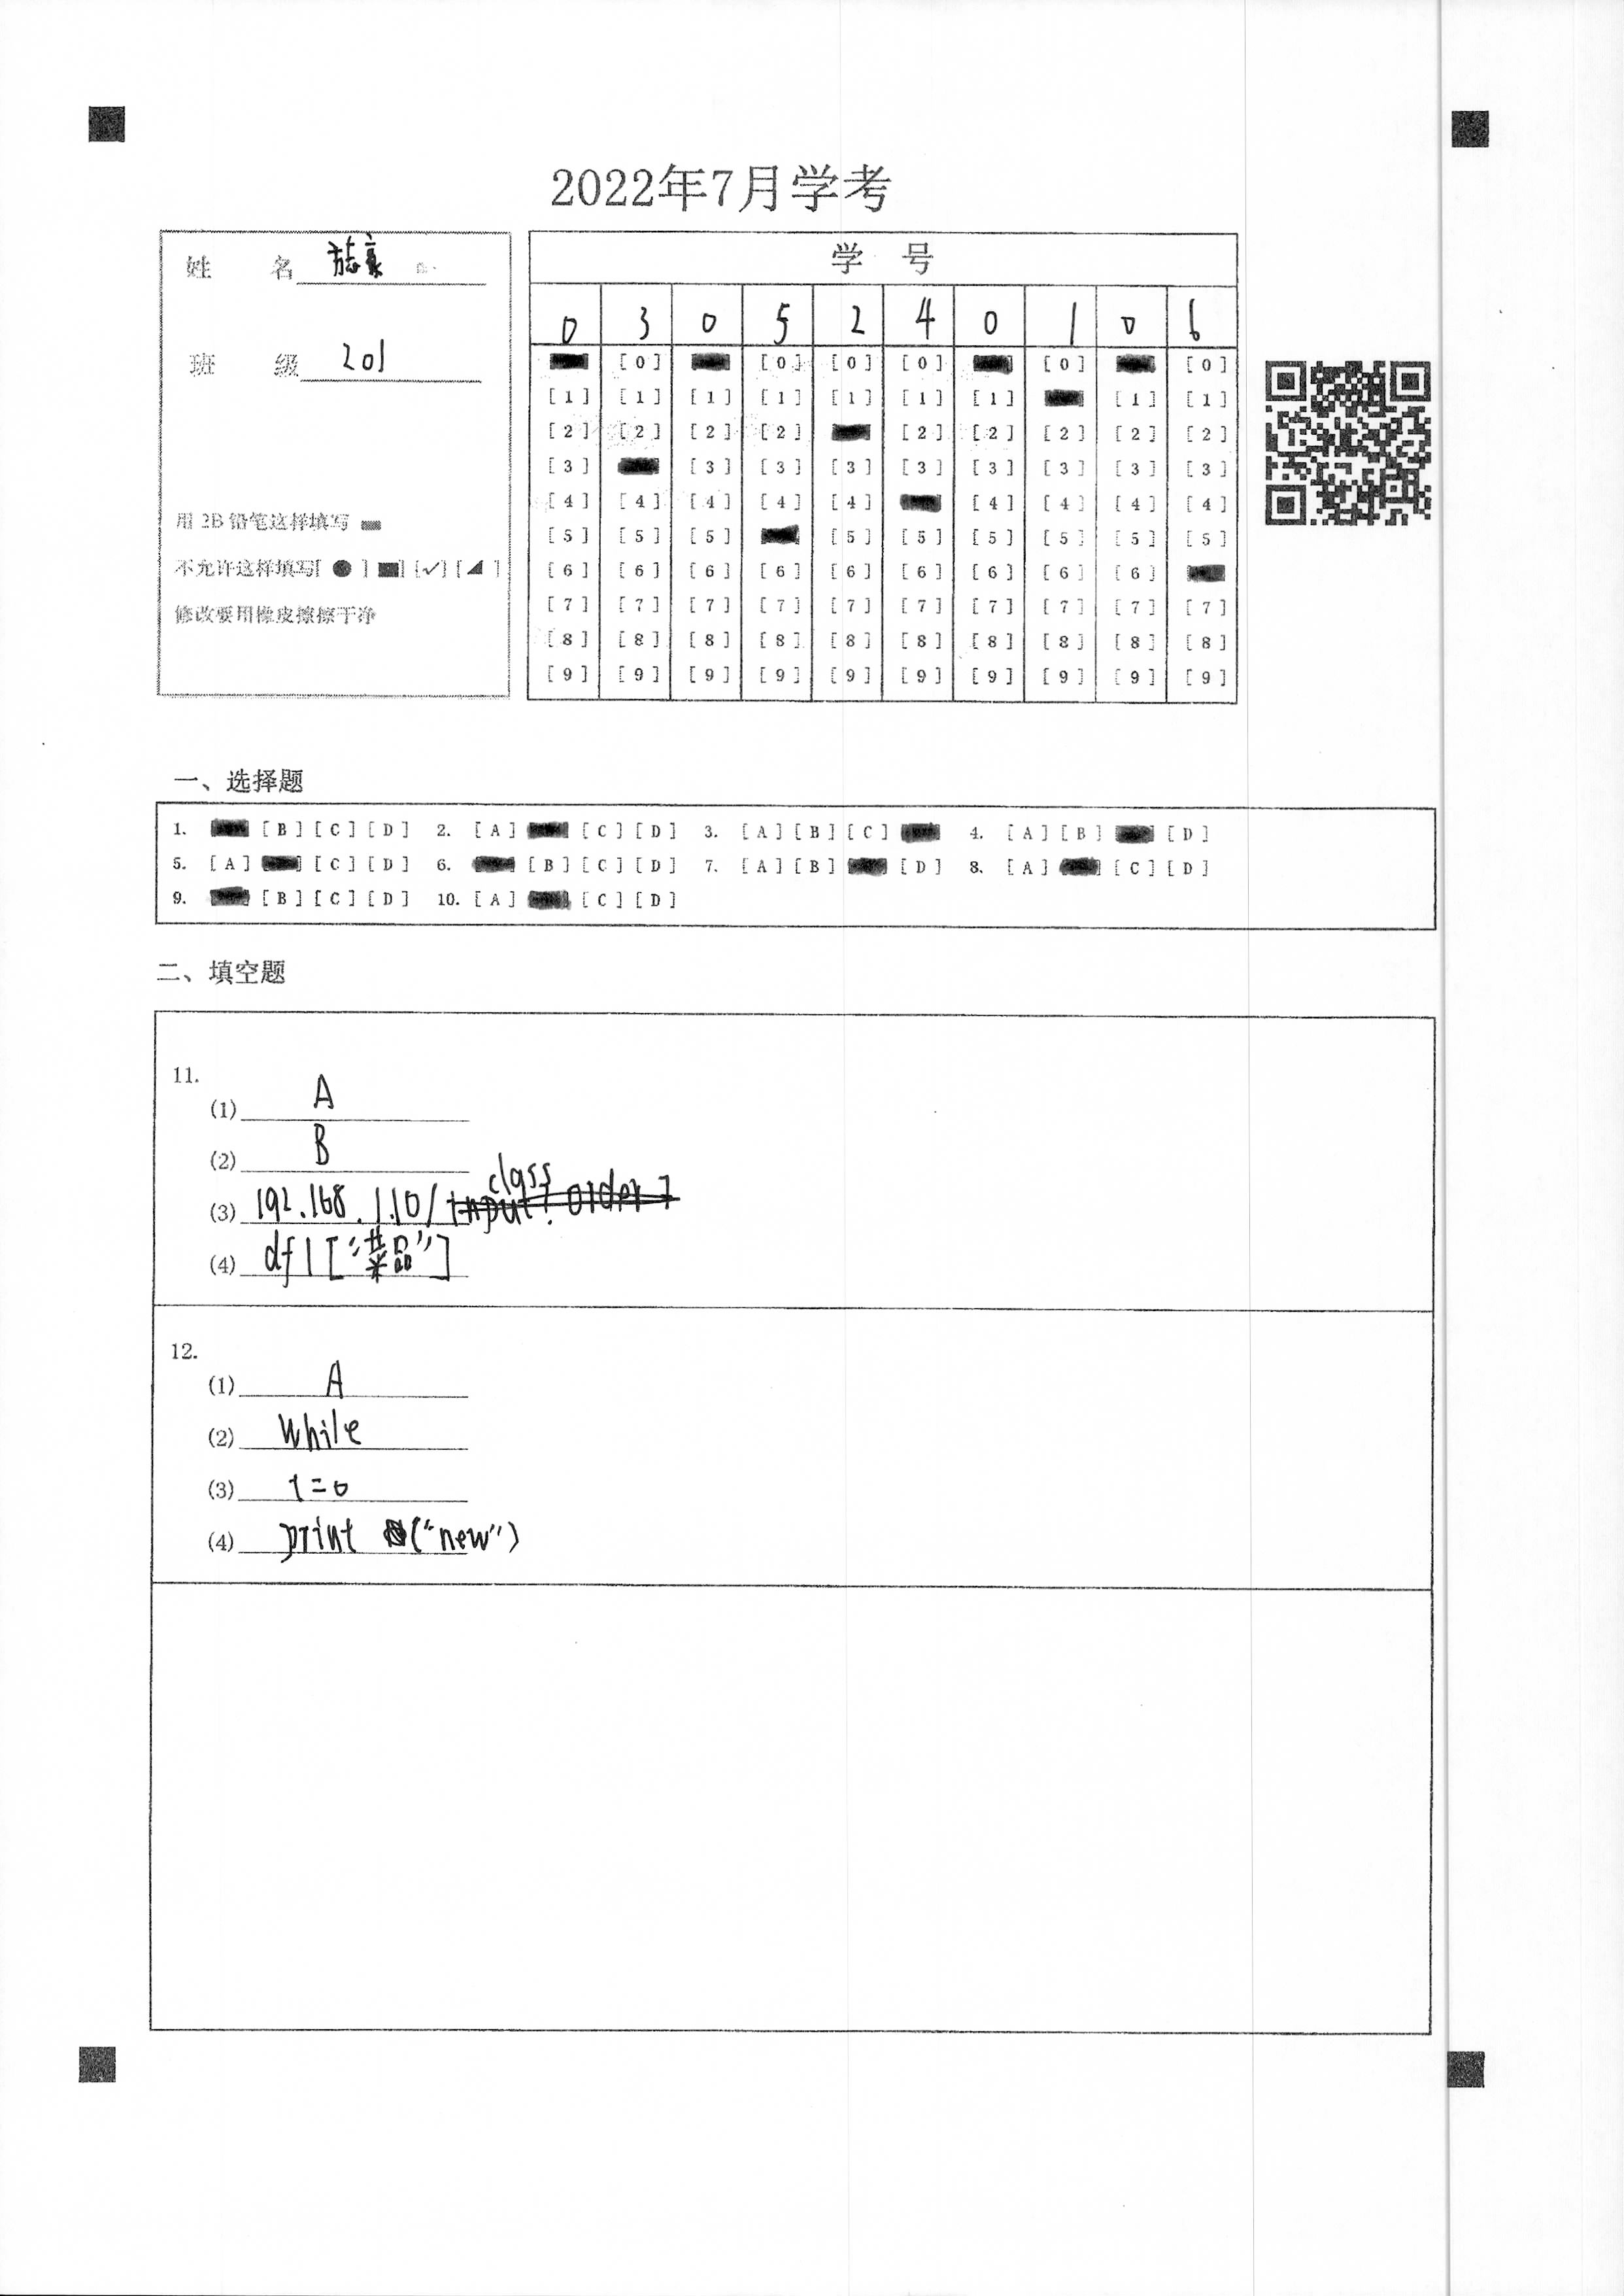 2022年7月学考
姓 名 施志豪
班 级 201
用 2B 铅笔这样填写
不允许这样填写[ ● ] [✓] [ ]
修改要用橡皮擦擦干净
学 号
0 3 0 5 2 4 0 1 0 6
[0] [0] [0] [0] [0] [0]
[1] [1] [1] [1] [1] [1] [1] [1] [1]
[2] [2] [2] [2] [2] [2] [2] [2] [2]
[3] [3] [3] [3] [3] [3] [3] [3] [3]
[4] [4] [4] [4] [4] [4] [4] [4] [4]
[5] [5] [5] [5] [5] [5] [5] [5] [5]
[6] [6] [6] [6] [6] [6] [6] [6] [6]
[7] [7] [7] [7] [7] [7] [7] [7] [7] [7]
[8] [8] [8] [8] [8] [8] [8] [8] [8] [8]
[9] [9] [9] [9] [9] [9] [9] [9] [9] [9]
一、选择题
1. [B] [C] [D] 2. [A] [C] [D] 3. [A] [B] [C] 4. [A] [B] [D]
5. [A] [C] [D] 6. [B] [C] [D] 7. [A] [B] [D] 8. [A] [C] [D]
9. [B] [C] [D] 10. [A] [C] [D]
二、填空题
11.
(1) A
(2) B
class
(3) 192.168.1.10/
(4) df1["菜品"]
12.
(1) A
(2) while
(3) i=0
(4) print ("new")